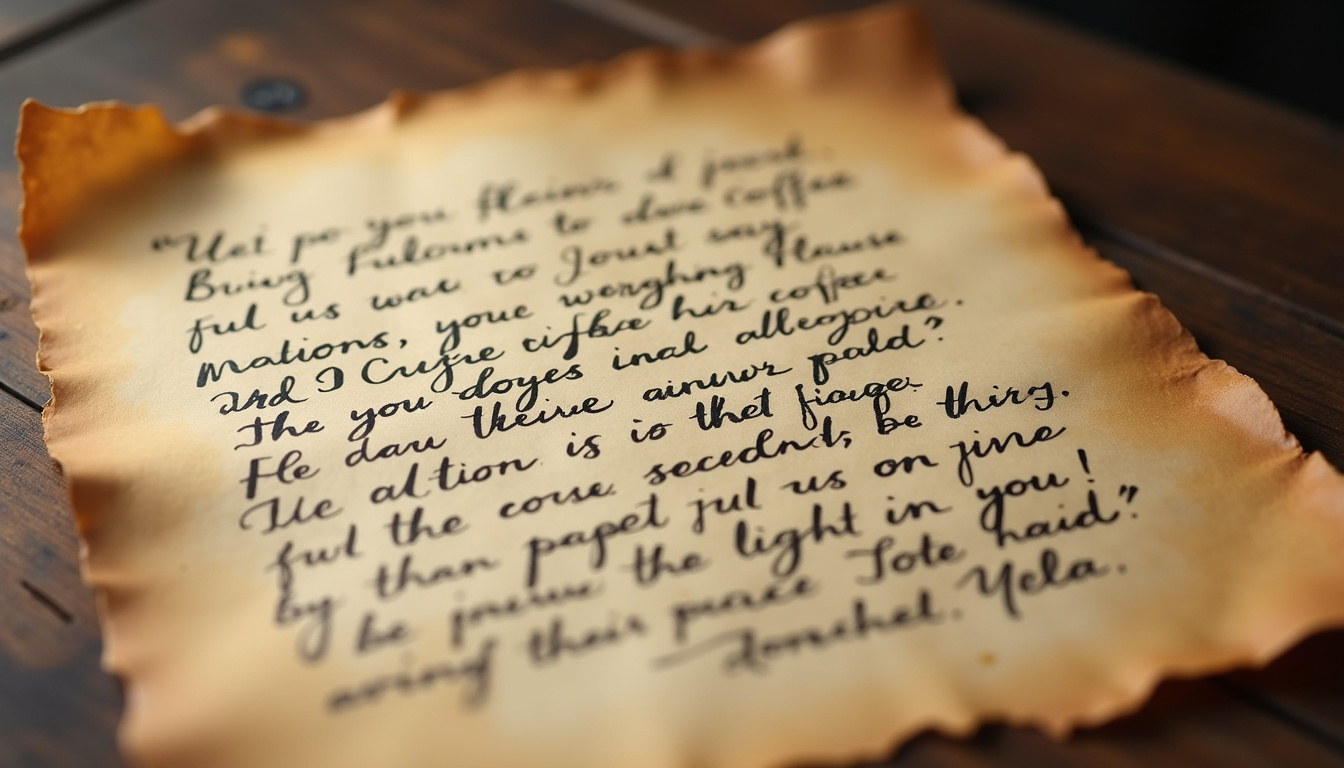 "Uet po you flaiwr d jourl.
Bruivg Fulorms to dwe coffee
ful us wae ro Joust say
mations, youe worghing Hause
ard I Cugre cifbce hir coffee
The you doyes inal allegoire.
Fle dau theire ainuwr pald?
The altion is io thet fiage.
fwl the corse secednt; be thirg.
by than papet jul us on jine
be jnuwe the light in you!
aving their purace Tote haid"?
— Jonshel. Yela.